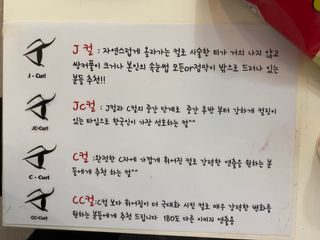 J컬 : 자연스럽게 올라가는 컬로 시술한 티가 거의 나지 않고
쌍커풀이 크거나 본인의 속눈썹 모든or점막이 밖으로 드러나 있는
분들 추천!!
J - Curl
JC컬 : J컬과 C컬의 중간 단계로 중간 후반 부터 강하게 컬링이
있는 타입으로 한국인이 가장 선호하는 컬^^
JC-Curl
C컬 :완전한 C자에 가깝게 휘어진 컬로 강력한 연출을 원하는 분
들에게 추천 하는 컬^^
C - Curl
CC컬:C컬 보다 휘어짐이 더 극대화 시킨 컬로 매우 강력한 변화를
원하는 분들에게 추천 드립니다 180도 다른 이미지 연출용
CC-Curl